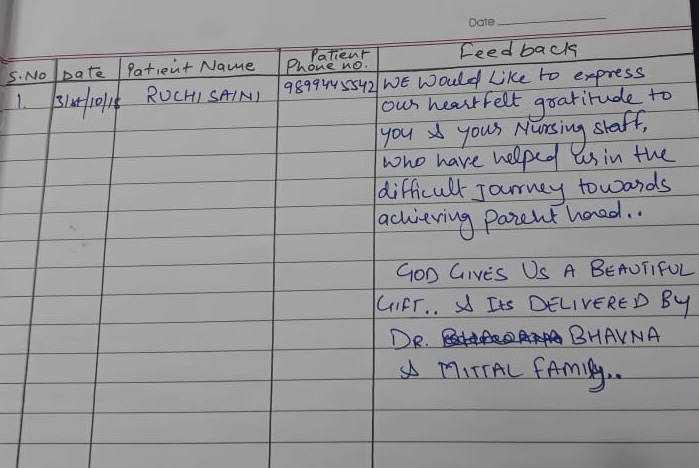 Date
S.No Date Patient Name Patient Phone no. Feedback
1. 31st/10/18 RUCHI SAINI 9899445542 WE Would Like to express
our heartfelt gratitude to
you & your Nursing staff,
who have helped us in the
difficult Journey towards
achieving Parent hood..
GOD GIVES US A BEAUTIFUL
GIFT.. & Its DELIVERED By
DR. BHAVNA
& MITTAL FAMIly..